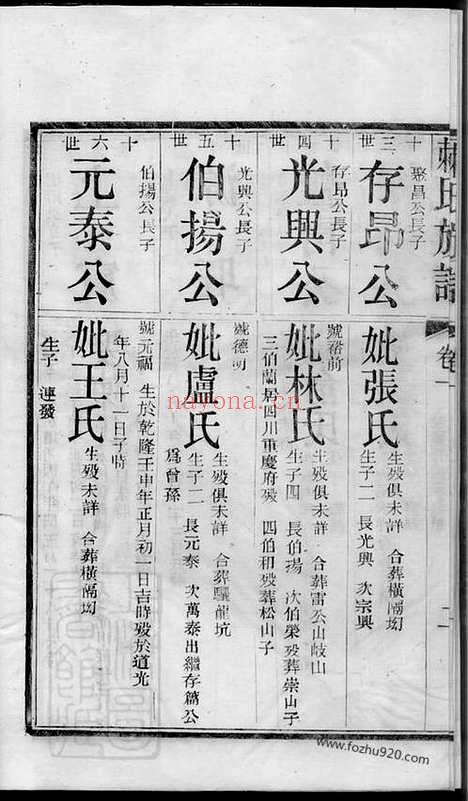 賴氏族譜
卷一
十三世
聚昌公長子
存昂公
妣張氏
生歿俱未詳 合葬橫隔㘭
生子二 長光興 次宗興
十四世
存昂公長子
光興公
號裕前
妣林氏
生歿俱未詳 合葬雷公山岐山
生子四 長伯揚 次伯榮歿葬崇山子
三伯蘭居四川重慶府歿 四伯和歿葬松山子
十五世
光興公長子
伯揚公
號德明
妣盧氏
生歿俱未詳 合葬驪龍坑
生子二 長元泰 次萬泰出繼存篇公
爲曾孫
十六世
伯揚公長子
元泰公
號元福 生於乾隆壬申年正月初一日吉時歿於道光
年八月十一日子時
妣王氏
生歿未詳 合葬橫隔㘭
生子 連發
nayona.cn
www.fozhu920.com